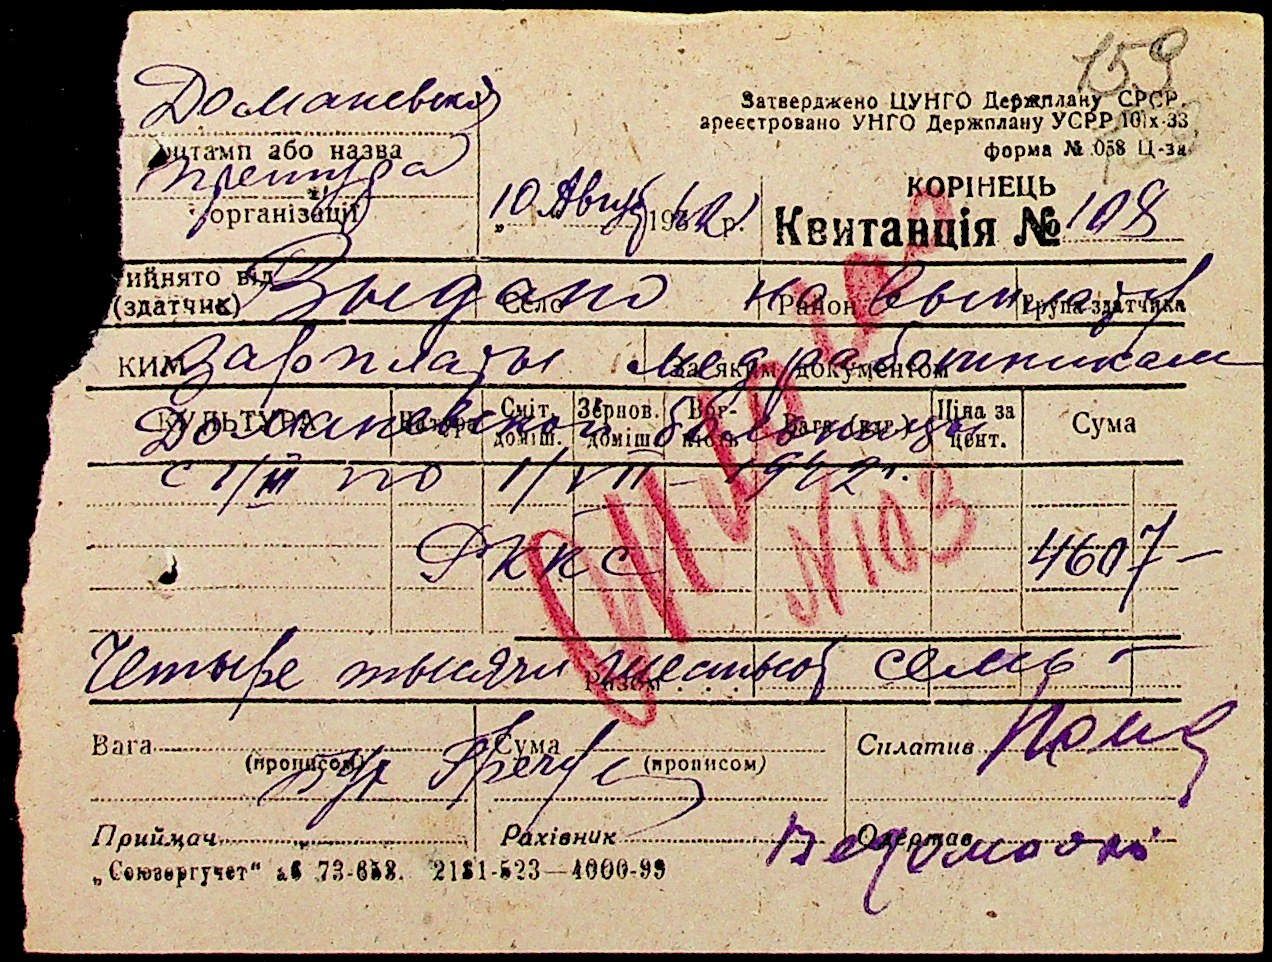 159
Доманевская
Затверджено ЦУНГО Держплану СРСР.
ареєстровано УНГО Держплану УСРР 10|х-33
штамп або назва
форма № 058 Ц-за
претура
КОРІНЕЦЬ
організації
10 Август 1942 р.
Квитанція № 108
ийнято від
Выдано на выплату
(здатчик) Село Район Група здатчика
КИМ зарплаты медработникам
За яким документом
КУЛЬТУРА Натура Сміт. доміш. Зернов. доміш. Вог-кість Вага (кгр.) Ціна за цент. Сума
Доманевской больницы
с 1/III по 1/VII - 1942 г.
№103
РККС 4607 —
Четыре тысячи шестьсот семь —
Разом . . .
Вага Сума Сплатив
(прописом) (прописом)
Приймач Рахівник Одержав
Ведомости
„Союзоргучет“ аб 73-658. 2181-523—4000-99